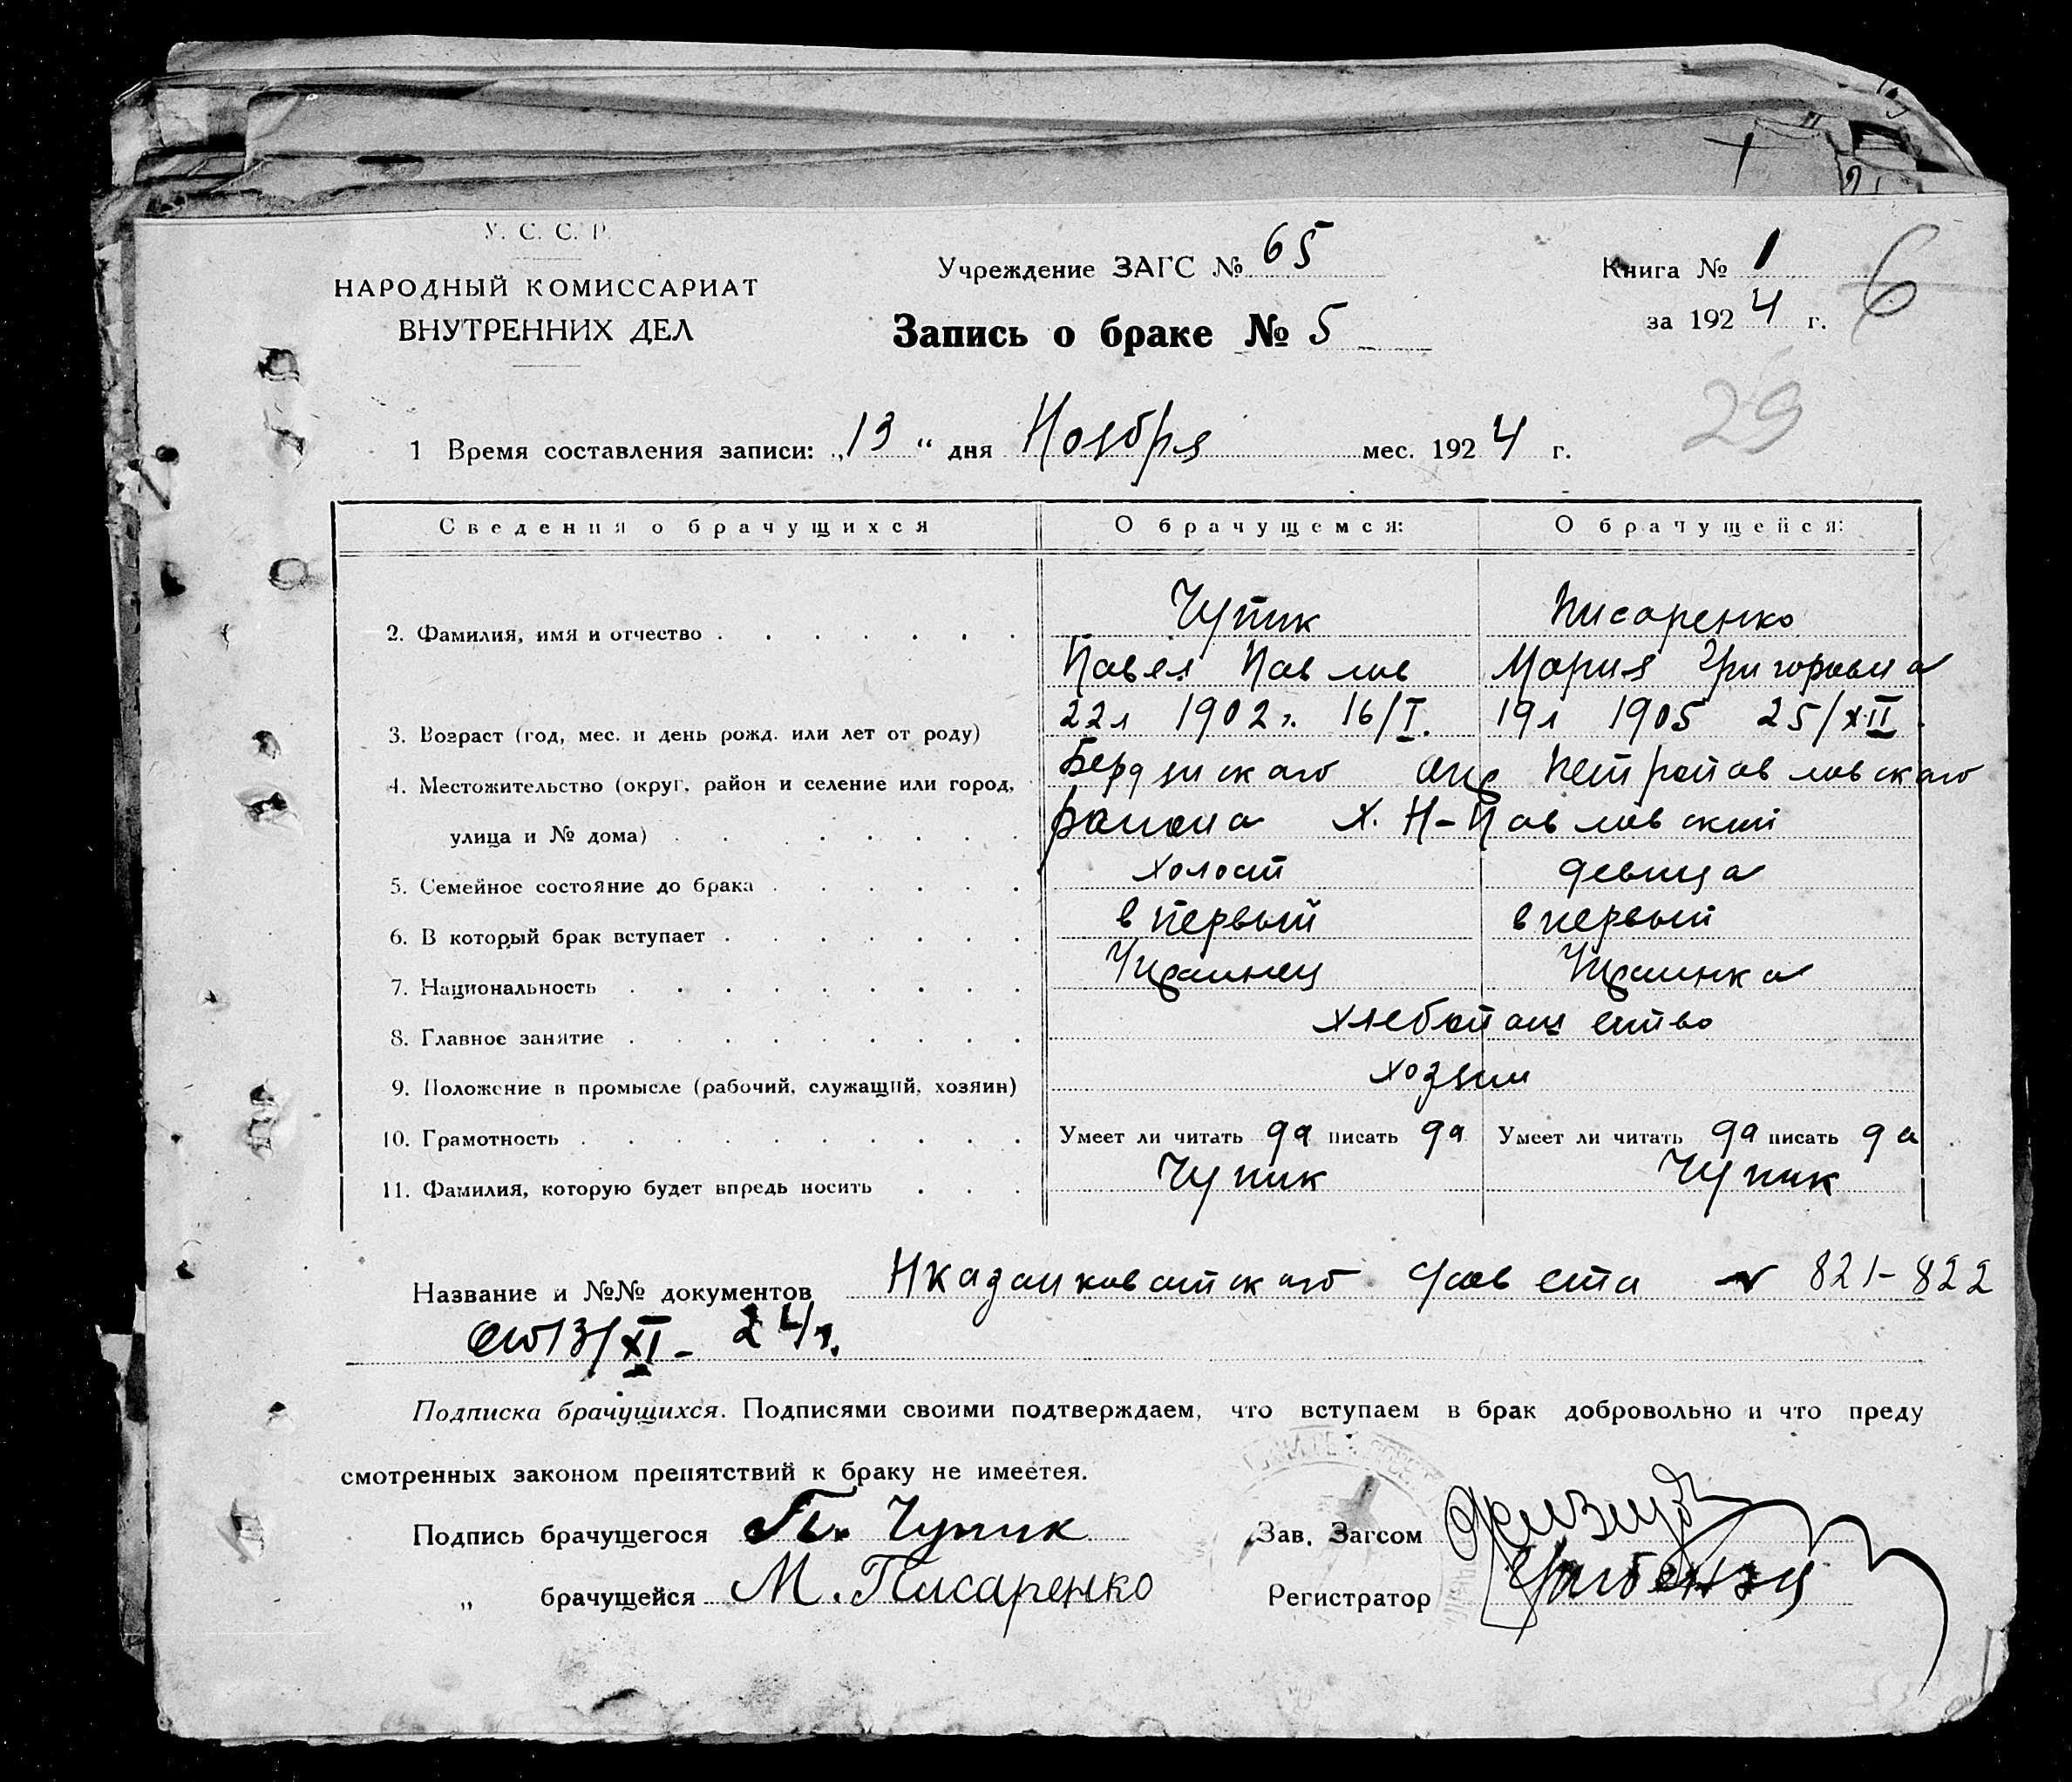 У. С. С. Р.
НАРОДНЫЙ КОМИССАРИАТ
ВНУТРЕННИХ ДЕЛ
Учреждение ЗАГС № 65
Запись о браке № 5
Книга № 1
за 1924 г.
6
29
1 Время составления записи: „13“ дня Ноября мес. 1924 г.
Сведения о брачущихся О брачущемся: О брачущейся:
2. Фамилия, имя и отчество Чупик Писаренко
Павел Павлов Мария Григоровна
3. Возраст (год, мес. и день рожд. или лет от роду) 22л 1902г. 16/I. 19л 1905 25/XII.
4. Местожительство (округ, район и селение или город, Бердянского окр Петропавловского
улица и № дома) района х. Н-Павловский
5. Семейное состояние до брака холост девица
6. В который брак вступает в первый в первый
7. Национальность Украинец Украинка
8. Главное занятие хлебопашество
9. Положение в промысле (рабочий, служащий, хозяин) хозяин
10. Грамотность Умеет ли читать да писать да Умеет ли читать да писать да
11. Фамилия, которую будет впредь носить Чупик Чупик
Название и №№ документов 821-822
от 13/XI - 24г.
Подписка брачущихся. Подписями своими подтверждаем, что вступаем в брак добровольно и что преду
смотренных законом препятствий к браку не имеется.
Подпись брачущегося П. Чупик Зав. Загсом
„ брачущейся М. Писаренко Регистратор